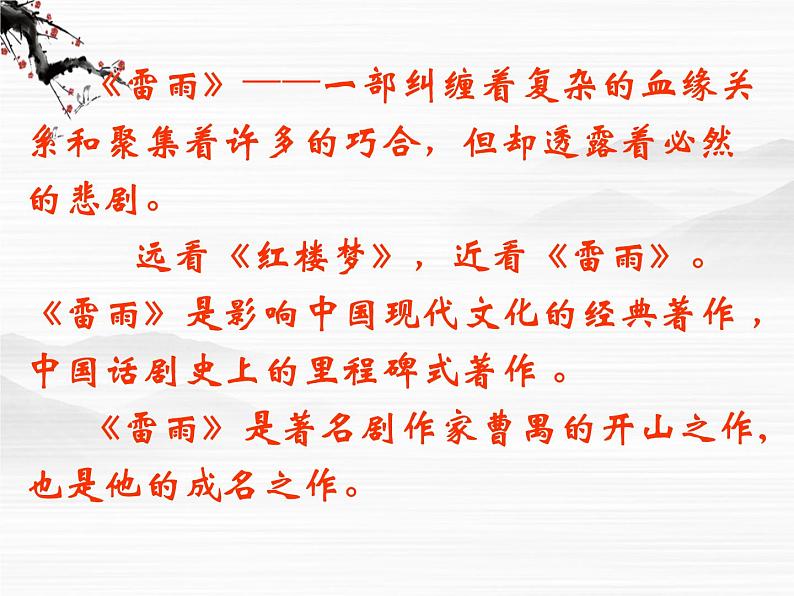 《雷雨》——一部纠缠着复杂的血缘关
系和聚集着许多的巧合，但却透露着必然
的悲剧。
远看《红楼梦》，近看《雷雨》。
《雷雨》是影响中国现代文化的经典著作，
中国话剧史上的里程碑式著作 。
《雷雨》是著名剧作家曹禺的开山之作，
也是他的成名之作。